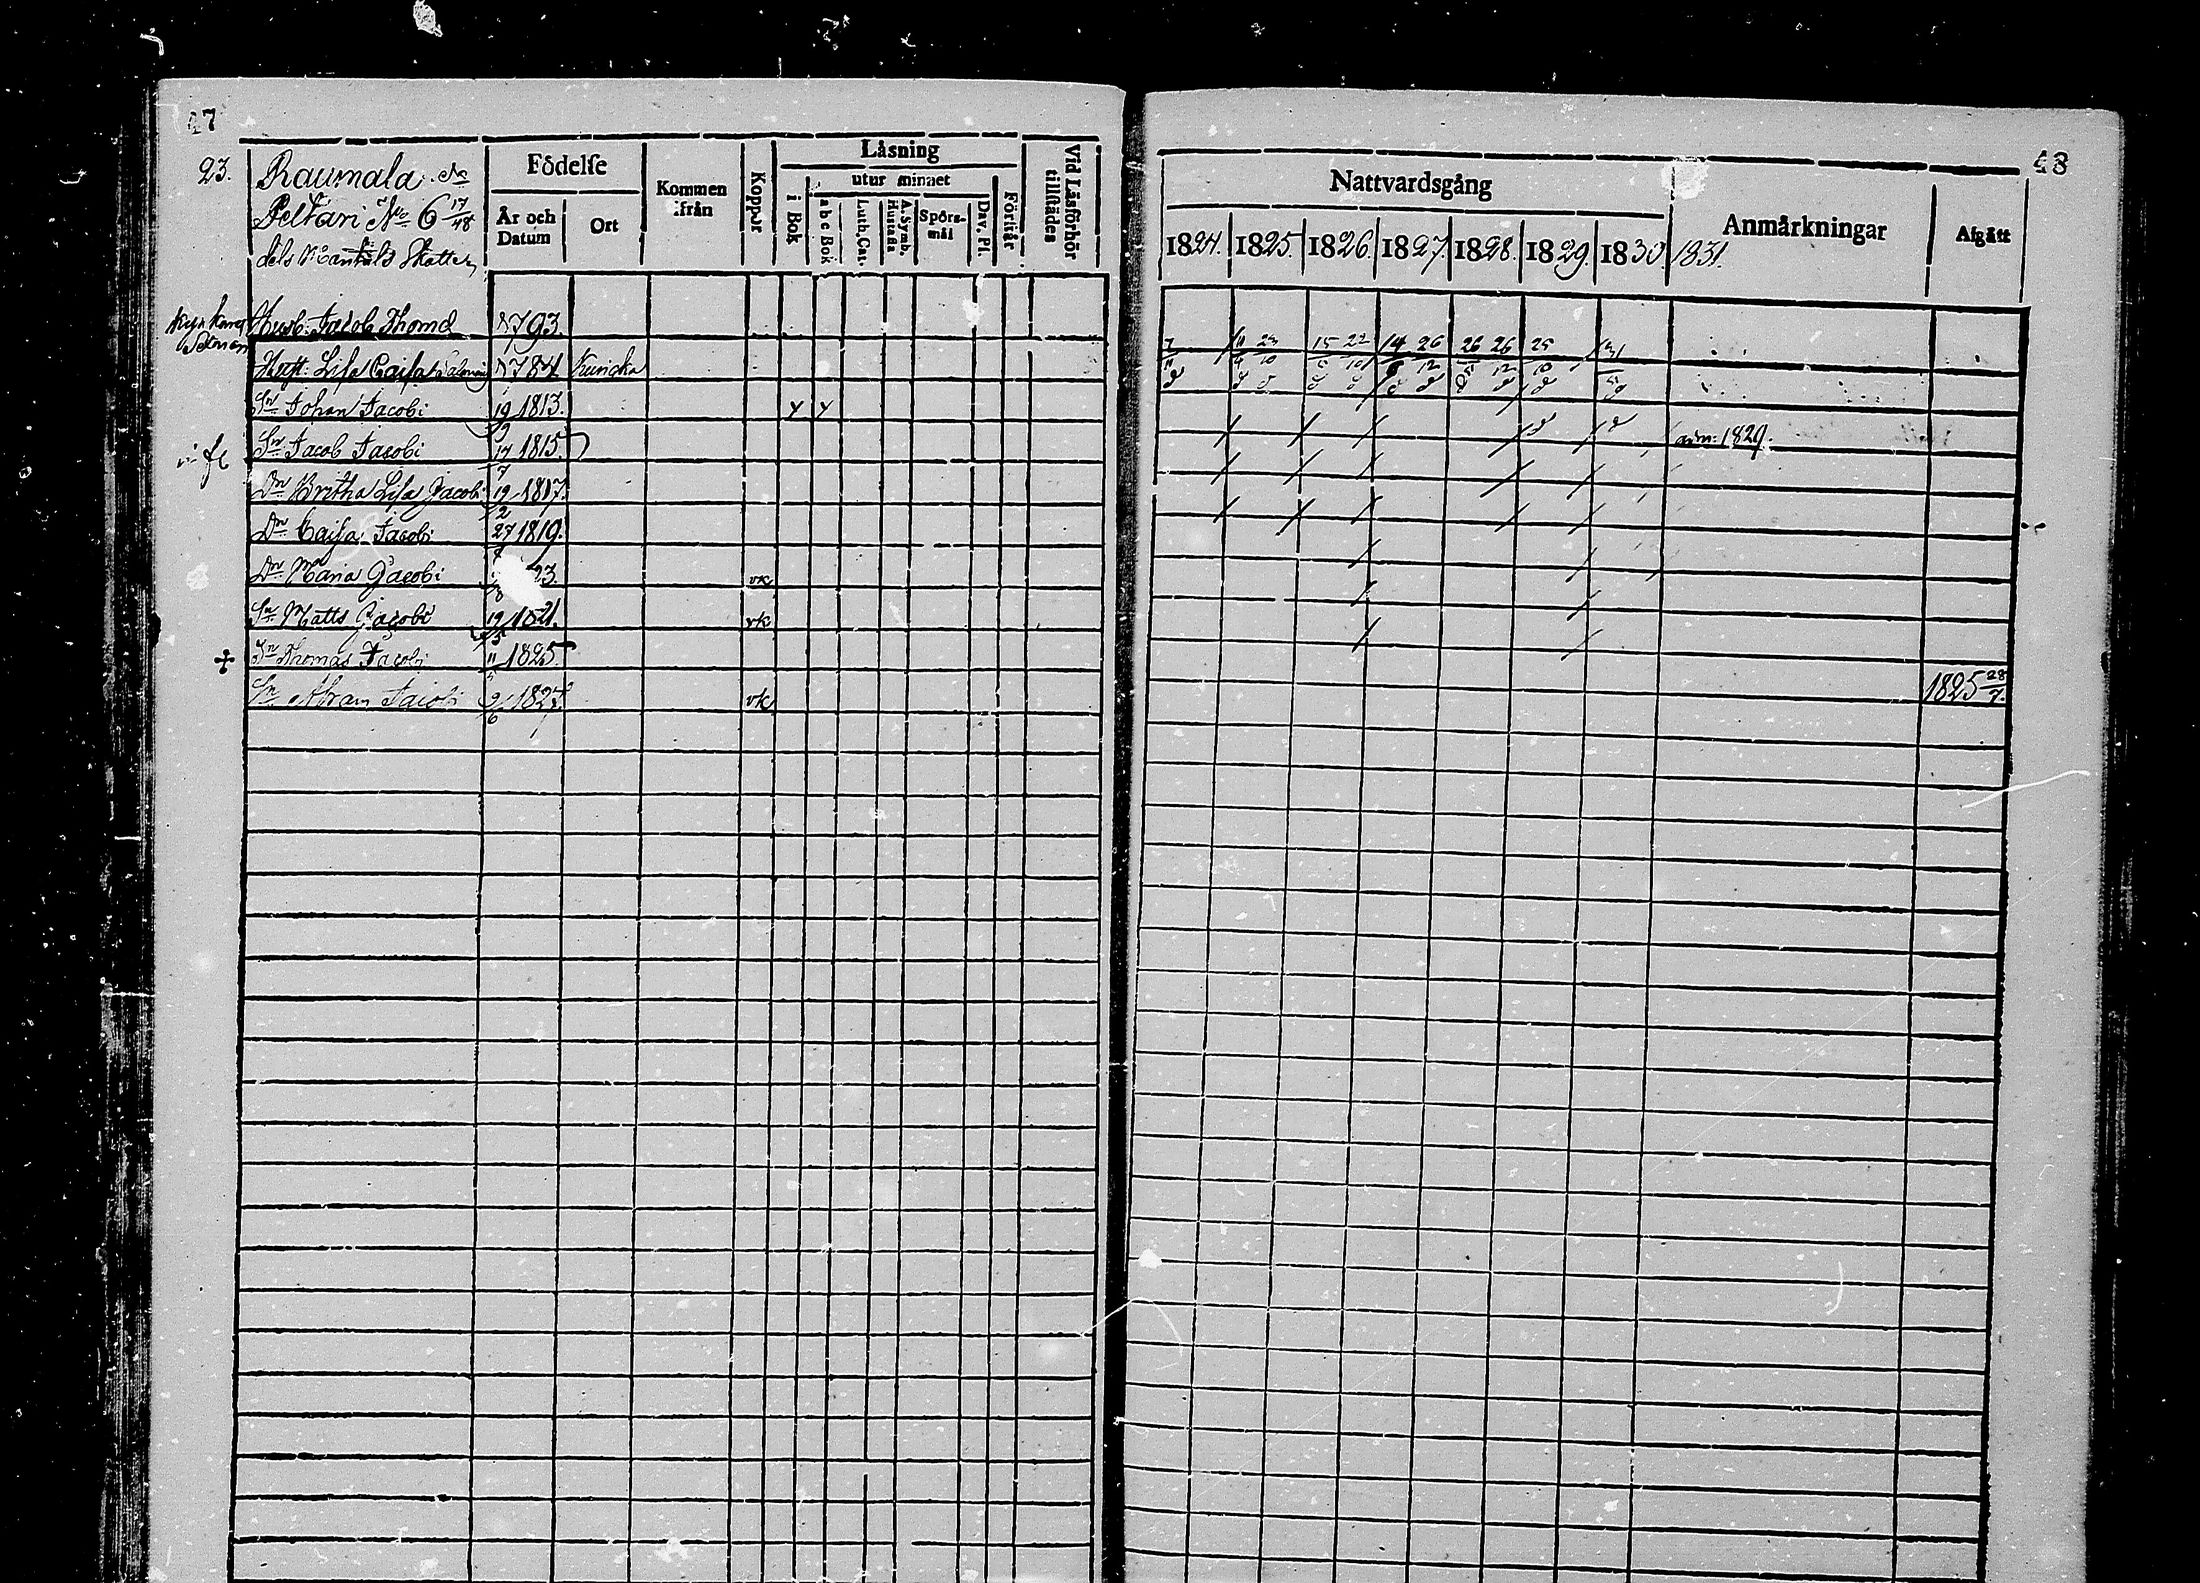 47
23.
Raumala
Peltari No 6 17/48
dels Mantals Skatte
Födelse
År och Datum
Ort
Kommen ifrån
Koppor
Läsning
i Bok
utur minnet
abc Bok
Luth. Cat.
A. Symb. Hustafla
Spörsmål
Dav. Ps.
Förstår
Vid Läsförhör tillstädes
Husb. Jacob Thomæ 1793.
Hust: Lisa Caisa 1784 Kuricka
Sn Johan Jacobi 19 1813. y y
Sn Jacob Jacobi 14/7 1815
Dn Britha Lisa Jacobi 19/2 1817.
Dn Caisa Jacobi 27 1819.
Dn Maria Jacobi 23. vk
Sn Matts Jacobi 19/5 1821. vk
+ Sn Thomas Jacobi 11/5 1825
Sn Abram Jacobi 9/6 1827 vk
48
Nattvardsgång
1824. 1825. 1826. 1827. 1828. 1829. 1830. 1831.
Anmärkningar
Afgått
15 22 14 26 26 26 25
adm: 1829.
1825 28/7.